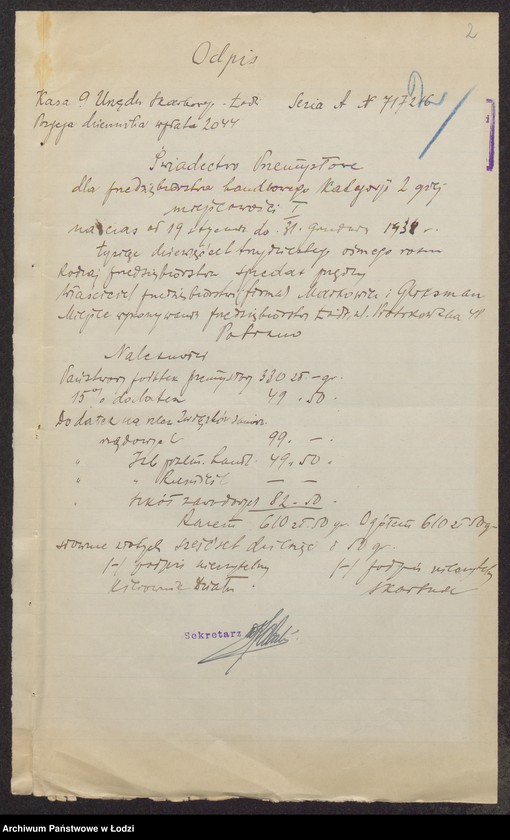 2
Odpis
Kasa 9 Urzędu Skarbow. Łódź Seria A № 717216
Pozycja dziennika wpłata 2044
Świadectwo Przemysłowe
dla przedsiębiorstwa handlowego Kategorji 2 giej
miejscowości I
na czas od 19 stycznia do 31. grudnia 1938 r.
tysiąc dziewięćset trzydziestego ósmego roku
Rodzaj przedsiębiorstwa sprzedaż przędzy
Właściciel przedsiębiorstwa, firma Markowicz i Glezman
Miejsce wykonywania przedsiębiorstwa Łódź, ul. Piotrkowska 48
Pobrano
Należności
Państwowy podatek przemysłowy 330 zł - gr.
15% dodatek 49 . 50 .
Dodatek na rzecz Związków samorz.
99. - .
" Izb przem. handl. 49. 50 .
" " Rzemieśl — —
" szkół zawodowych 82 . 50 .
Razem 610 zł 50 gr Ogółem 610 zł 50 gr
słownie złotych sześćset dziesięć i 50 gr.
(-) podpis nieczytelny (-) podpis nieczytelny
Kierownik Działu Skarbnik
Sekretarz
Archiwum Państwowe w Łodzi